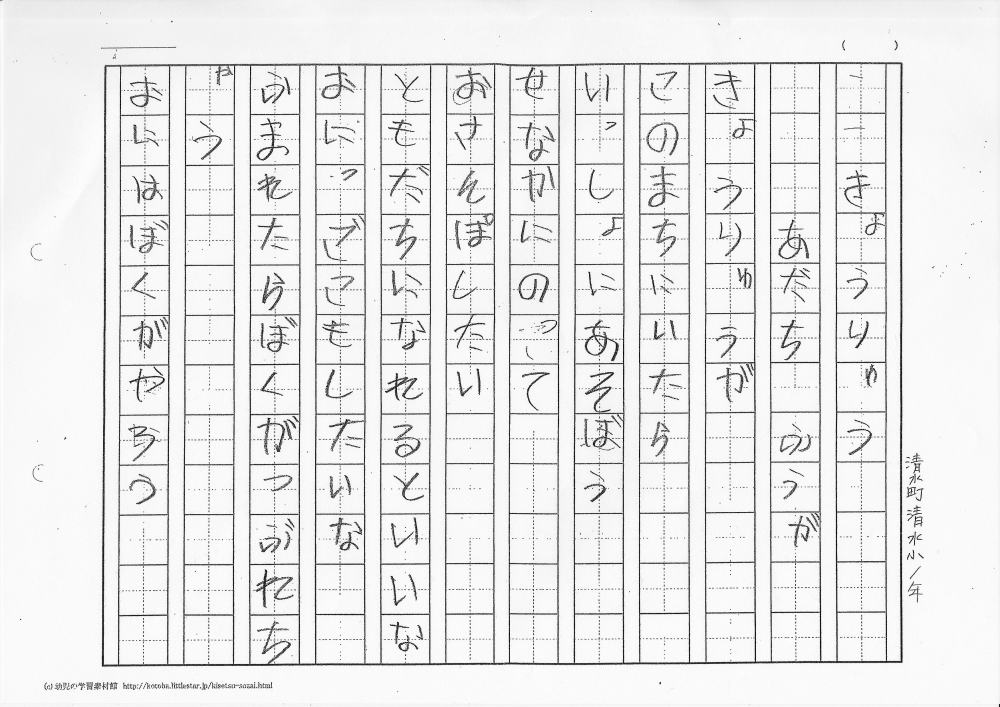 清水町清水小1年
きょうりゅう
あだち　ふうが
きょうりゅうが
このまちにいたら
いっしょにあそぼう
せなかにのって
おさんぽしたい
ともだちになれるといいな
おにっごこもしたいな
ふまれたらぼくがつぶれち
ゃう
おにはぼくがやろう
(c) 幼児の学習素材館 http://kotoba.littlestar.jp/kisetsu-sozai.html